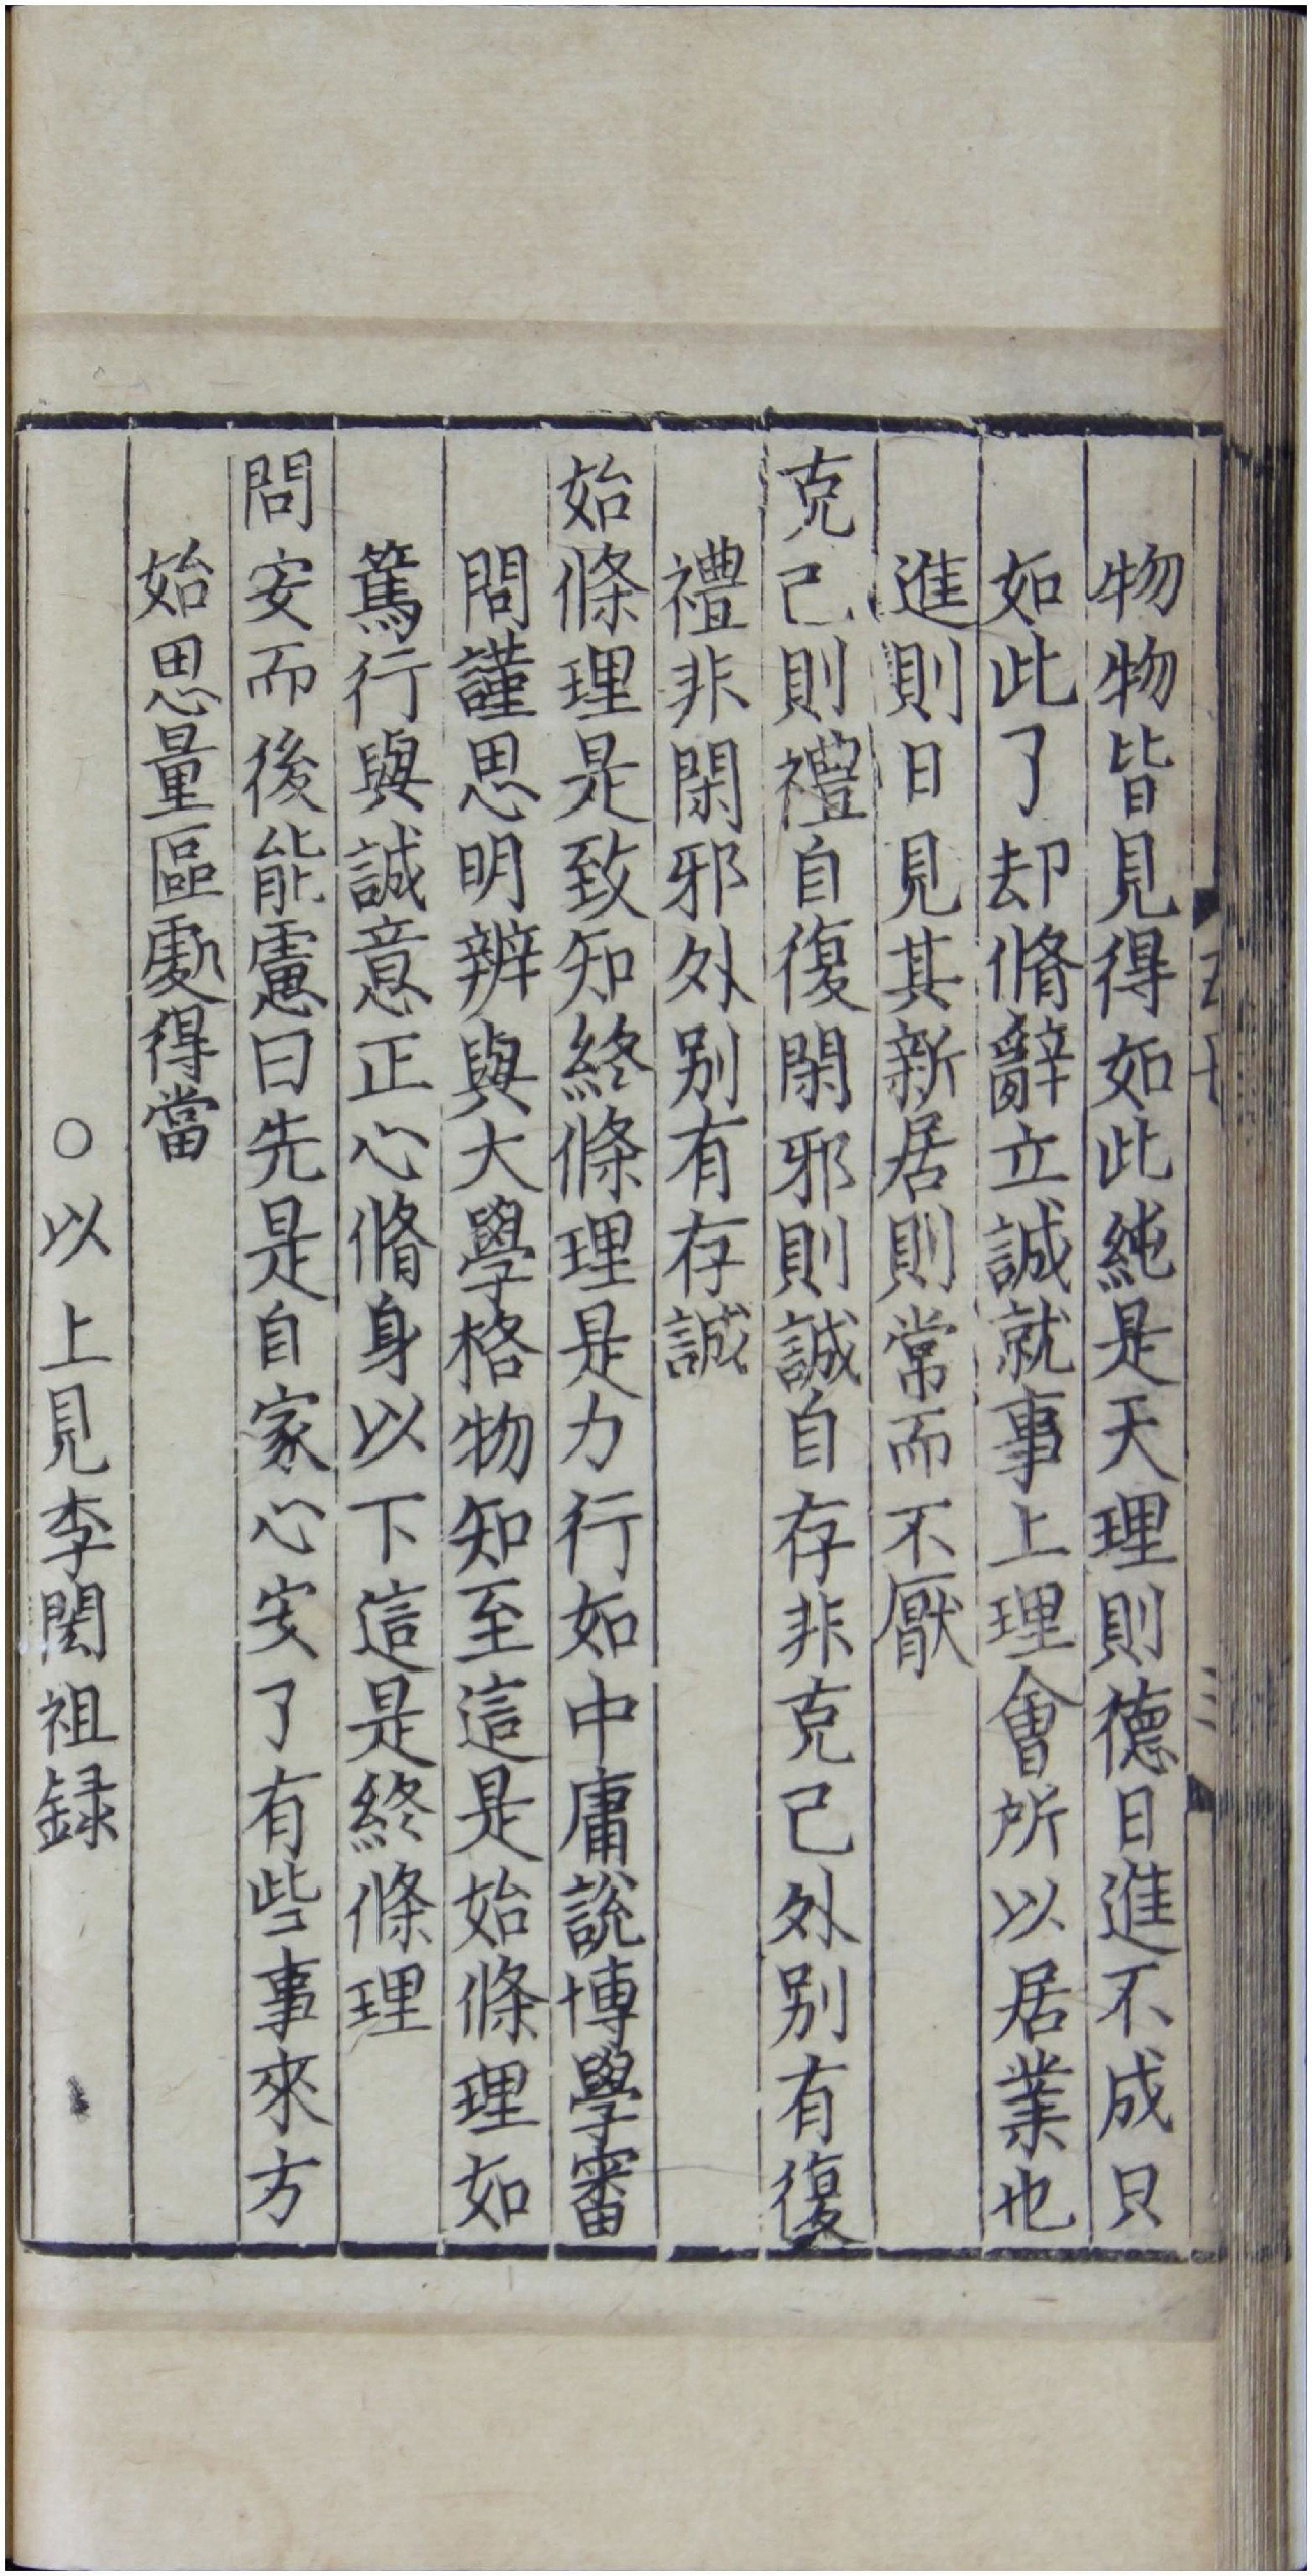 物物皆見得如此純是天理則德日進不成只
如此了却脩辭立誠就事上理會所以居業也
進則日見其新居則常而不厭
克己則禮自復閑邪則誠自存非克己外別有復
禮非閑邪外別有存誠
始條理是致知終條理是力行如中庸說博學審
問謹思明辨與大學格物知至這是始條理如
篤行與誠意正心脩身以下這是終條理
問安而後能慮曰先是自家心安了有些事來方
始思量區處得當
○以上見李閎祖録